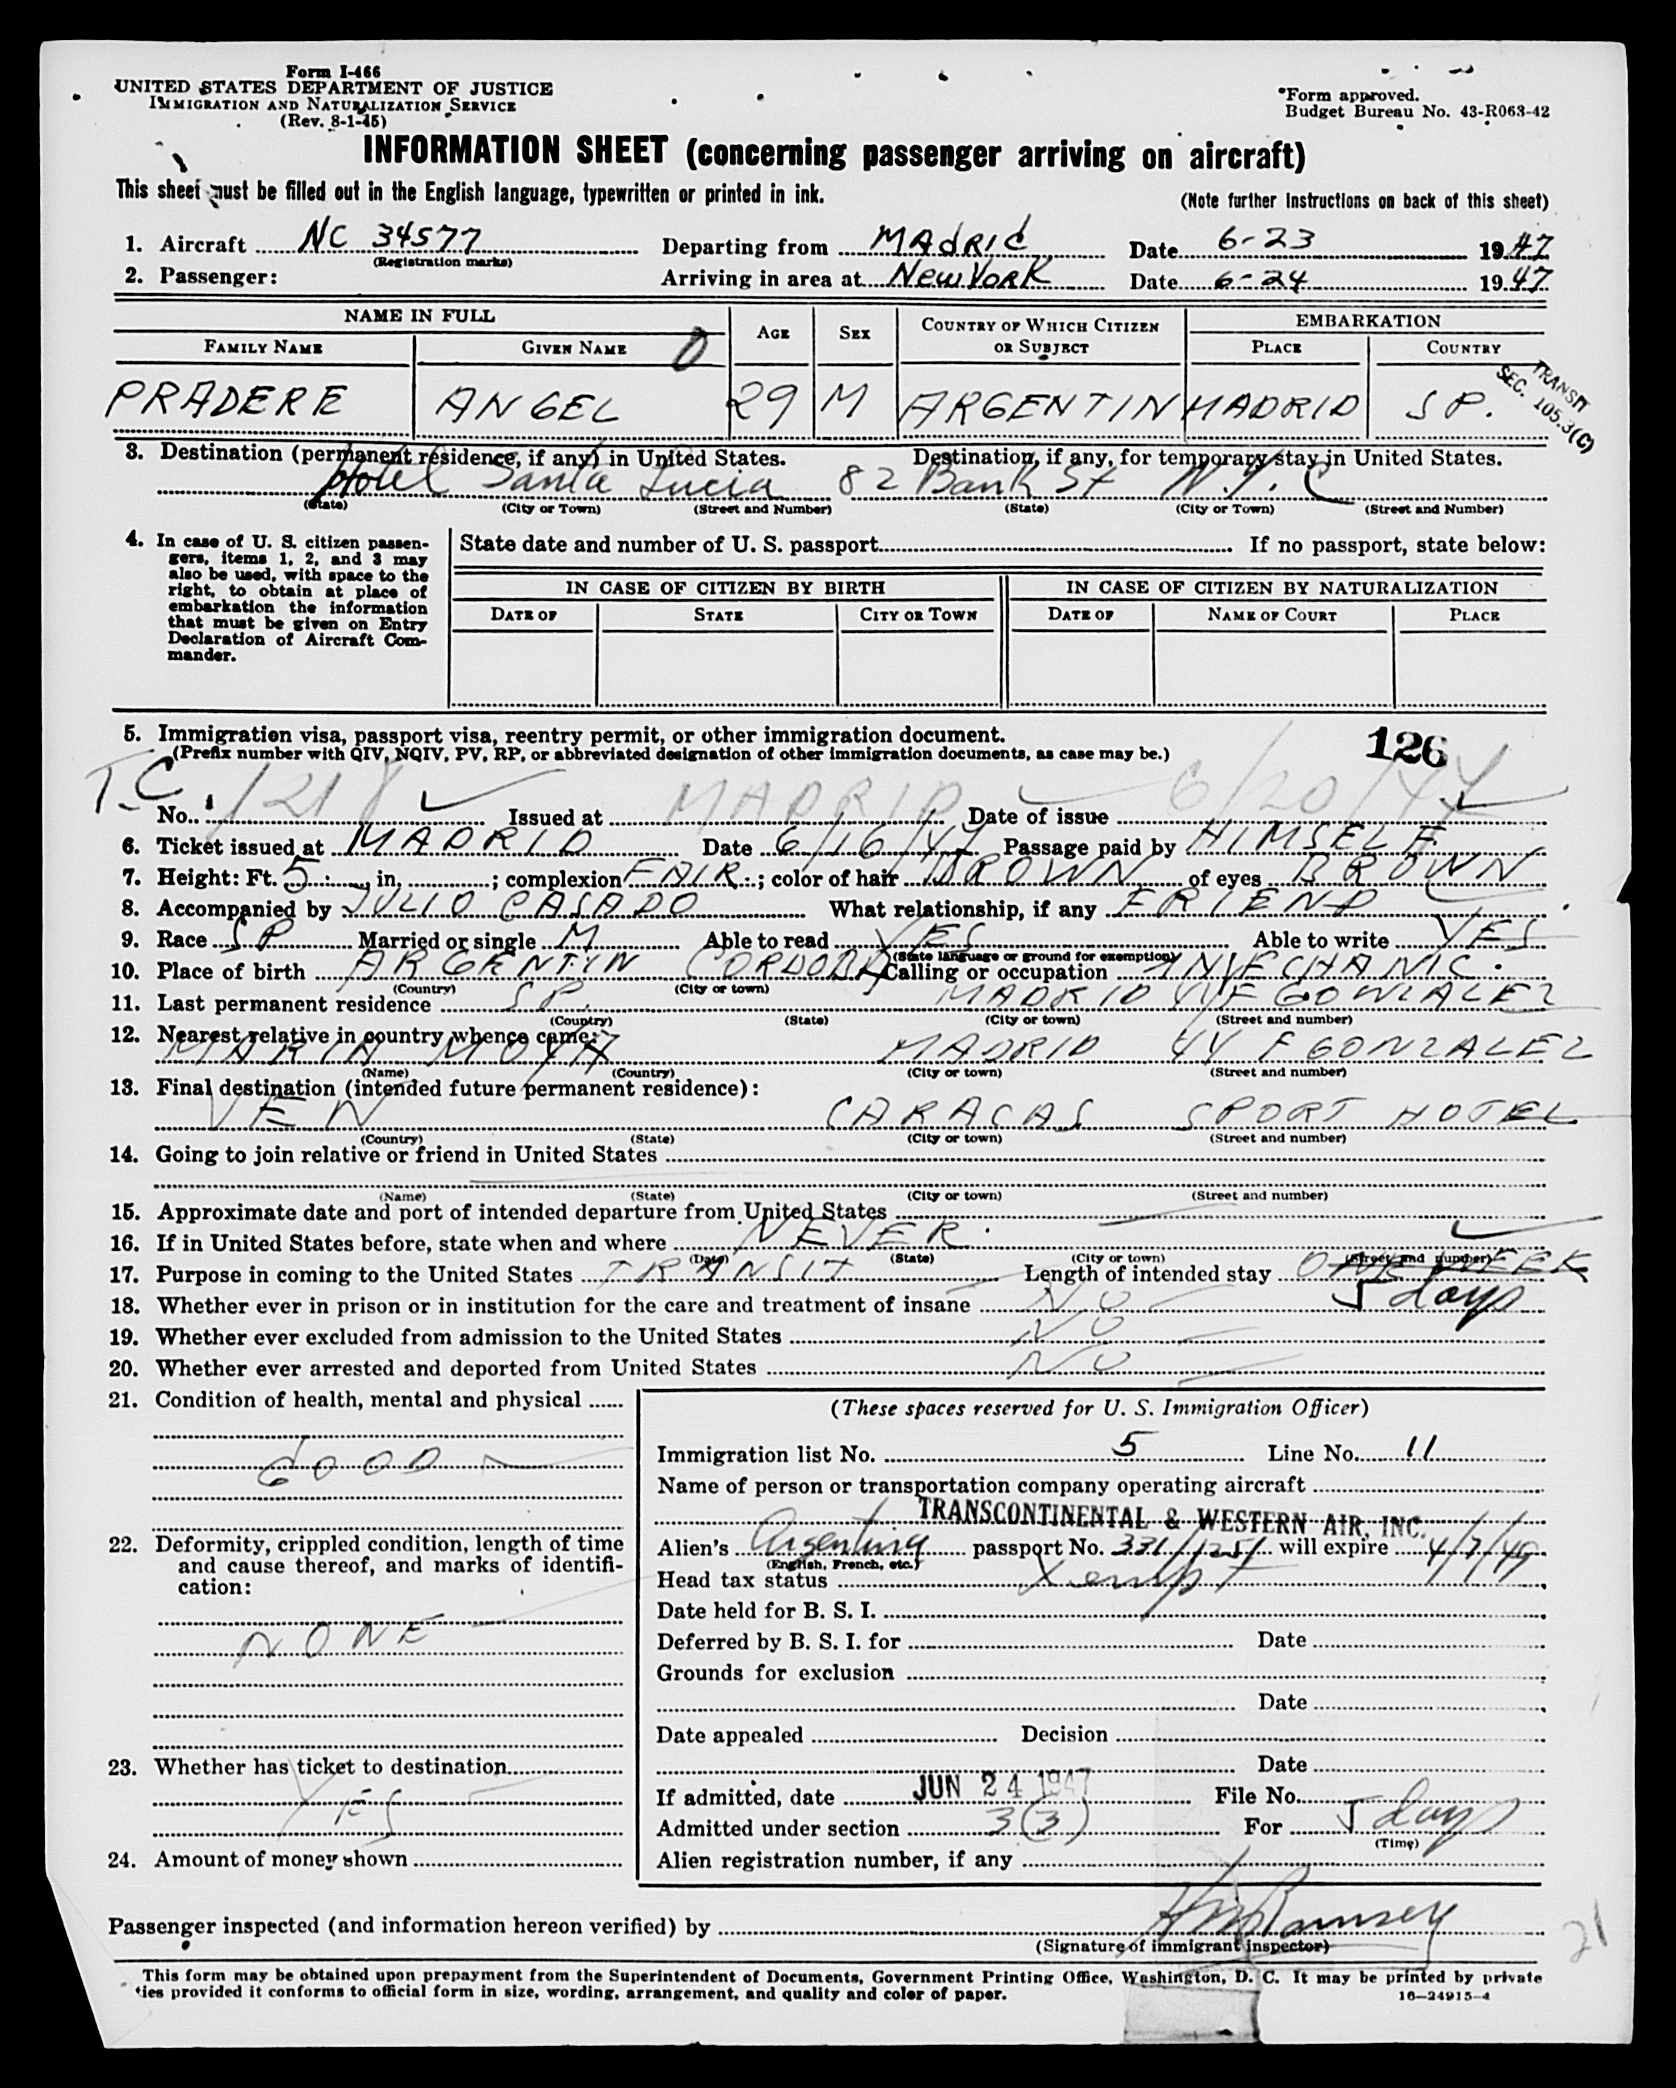 Form I-466
UNITED STATES DEPARTMENT OF JUSTICE
IMMIGRATION AND NATURALIZATION SERVICE
(Rev. 8-1-45)
*Form approved.
Budget Bureau No. 43-R063-42
INFORMATION SHEET (concerning passenger arriving on aircraft)
This sheet must be filled out in the English language, typewritten or printed in ink.
(Note further instructions on back of this sheet)
1. Aircraft NC 34577 Departing from MADRID Date 6-23 1947
(Registration marks)
2. Passenger: Arriving in area at New York Date 6-24 1947
NAME IN FULL AGE SEX COUNTRY OF WHICH CITIZEN OR SUBJECT EMBARKATION
FAMILY NAME GIVEN NAME PLACE COUNTRY
PRADERE ANGEL 29 M ARGENTIN MADRID SP.
TRANSIT
SEC. 105.3(C)
3. Destination (permanent residence, if any) in United States. Destination, if any, for temporary stay in United States.
Hotel Santa Lucia 82 Bank St N.Y.C
(State) (City or Town) (Street and Number) (State) (City or Town) (Street and Number)
4. In case of U. S. citizen passen-
gers, items 1, 2, and 3 may
also be used, with space to the
right, to obtain at place of
embarkation the information
that must be given on Entry
Declaration of Aircraft Com-
mander.
State date and number of U. S. passport If no passport, state below:
IN CASE OF CITIZEN BY BIRTH IN CASE OF CITIZEN BY NATURALIZATION
DATE OF STATE CITY OR TOWN DATE OF NAME OF COURT PLACE
5. Immigration visa, passport visa, reentry permit, or other immigration document.
(Prefix number with QIV, NQIV, PV, RP, or abbreviated designation of other immigration documents, as case may be.)
126
T.C
No. Issued at MADRID Date of issue
6. Ticket issued at MADRID Date 6/16/47 Passage paid by HIMSELF
7. Height: Ft. 5 in. ; complexion FAIR ; color of hair BROWN of eyes BROWN
8. Accompanied by JULIO CASADO What relationship, if any FRIEND
9. Race SP Married or single M Able to read YES Able to write YES
(State language or ground for exemption)
10. Place of birth ARGENTIN CORDOBA Calling or occupation MECHANIC.
(Country) (City or town)
11. Last permanent residence SP. MADRID 44 F GONZALEZ
(Country) (State) (City or town) (Street and number)
12. Nearest relative in country whence came:
MARIA MOYA MADRID 44 F GONZALEZ
(Name) (Country) (City or town) (Street and number)
13. Final destination (intended future permanent residence):
VEN CARACAS SPORT HOTEL
(Country) (State) (City or town) (Street and number)
14. Going to join relative or friend in United States
(Name) (State) (City or town) (Street and number)
15. Approximate date and port of intended departure from United States
16. If in United States before, state when and where NEVER.
(Date) (State) (City or town) (Street and number)
17. Purpose in coming to the United States TRANSIT Length of intended stay ONE WEEK
5 days
18. Whether ever in prison or in institution for the care and treatment of insane NO
19. Whether ever excluded from admission to the United States NO
20. Whether ever arrested and deported from United States NO
21. Condition of health, mental and physical
GOOD
22. Deformity, crippled condition, length of time
and cause thereof, and marks of identifi-
cation:
NONE
23. Whether has ticket to destination
YES
24. Amount of money shown
(These spaces reserved for U. S. Immigration Officer)
Immigration list No. 5 Line No. 11
Name of person or transportation company operating aircraft
TRANSCONTINENTAL & WESTERN AIR, INC.
Alien's Argentina passport No. 331/1251 will expire 4/7/49
(English, French, etc.)
Head tax status Xempt
Date held for B. S. I.
Deferred by B. S. I. for Date
Grounds for exclusion
Date
Date appealed Decision
Date
If admitted, date JUN 24 1947 File No.
Admitted under section 3(3) For 5 days
(Time)
Alien registration number, if any
Passenger inspected (and information hereon verified) by Ramsey
(Signature of immigrant inspector)
21
This form may be obtained upon prepayment from the Superintendent of Documents, Government Printing Office, Washington, D. C. It may be printed by private
ties provided it conforms to official form in size, wording, arrangement, and quality and color of paper.
16—24915-4